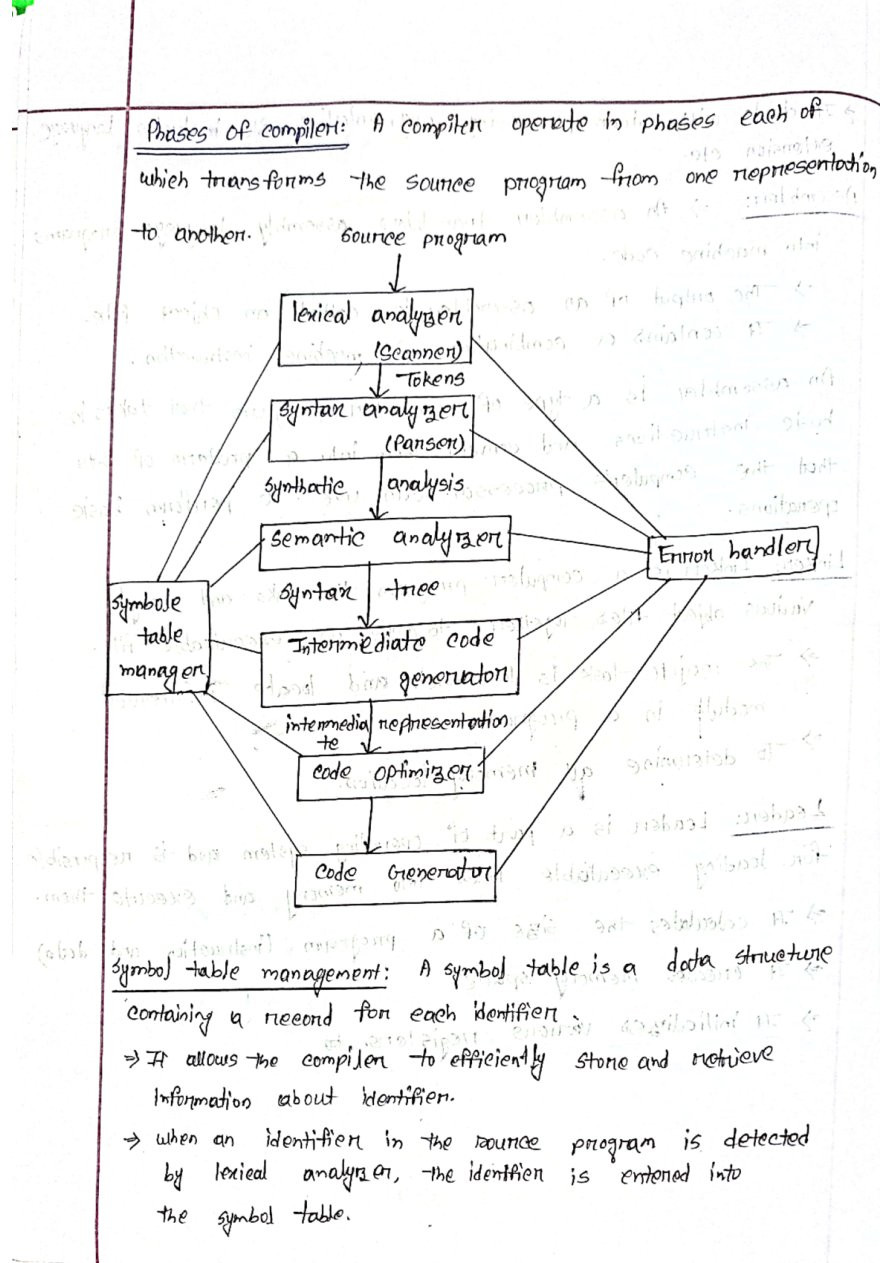 Phases of compiler: A compiler operate in phases each of
which transforms the source program from one representation
to another.
Source program
lexical analyzer
(Scanner)
Tokens
Syntax analyzer
(Parser)
Synthatic analysis
Semantic analyzer
Syntax tree
Error handler
Symbole
table
manager
Intermediate code
generator
intermedia representation
te
Code optimizer
Code Generator
Symbol table management: A symbol table is a data structure
containing a record for each identifier.
⇒ It allows the compiler to efficiently store and retrieve
Information about identifier.
⇒ when an identifier in the source program is detected
by lexical analyzer, the identfier is entered into
the symbol table.